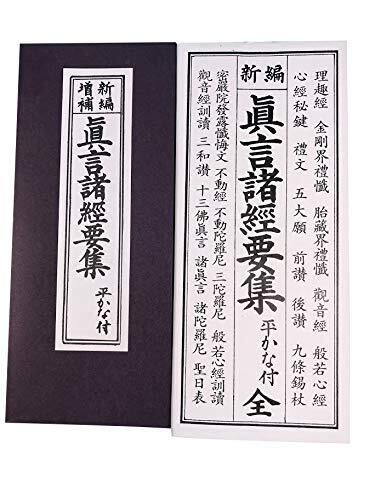 理趣經 金剛界禮懺 胎藏界禮懺 觀音經 般若心經
心經秘鍵 禮文 五大願 前讃 後讃 九條錫杖
新編
眞言諸經要集 平かな付 全
密嚴院發露懺悔文 不動經 不動陀羅尼 三陀羅尼 般若心經訓讀
觀音經訓讀 三和讃 十三佛眞言 諸眞言 諸陀羅尼 聖日表
新編
增補
眞言諸經要集 平かな付